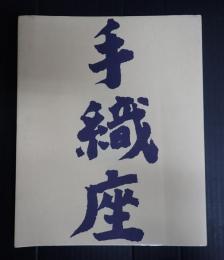 手織座